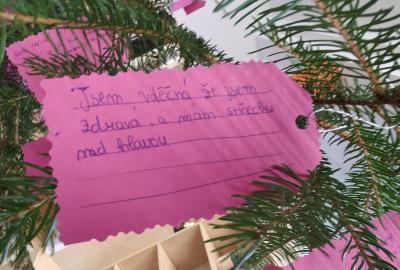 Jsem vděčná že jsem
zdravá, a mám střechu
nad hlavou